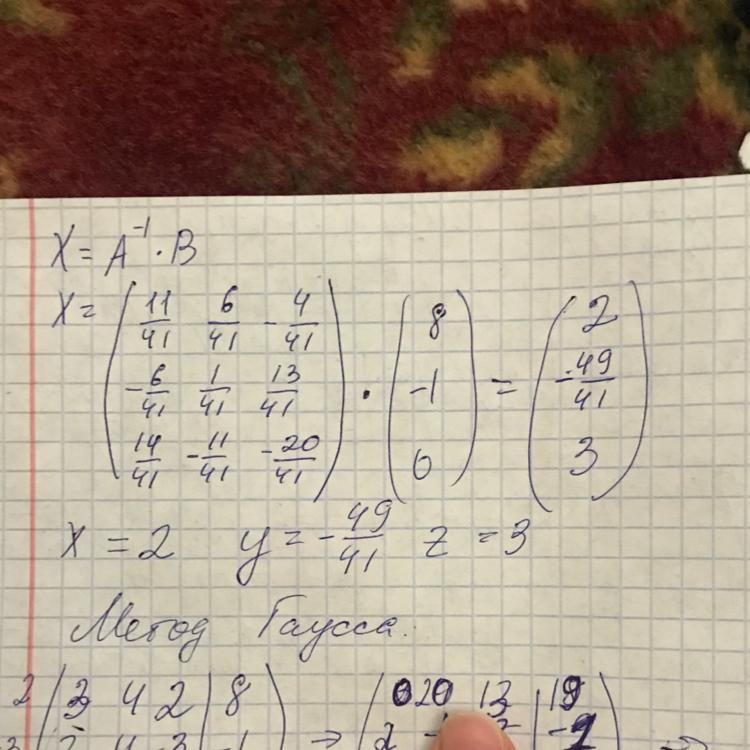 X = A⁻¹ · B
X = ( 11/41 6/41 -4/41 ; -6/41 1/41 13/41 ; 14/41 -11/41 -20/41 ) · ( 8 ; -1 ; 0 ) = ( 2 ; -49/41 ; 3 )
x = 2 y = -49/41 z = 3
Метод Гаусса.
2 ( 3 4 2 | 8 ) → ( 0 20 13 | 19 )